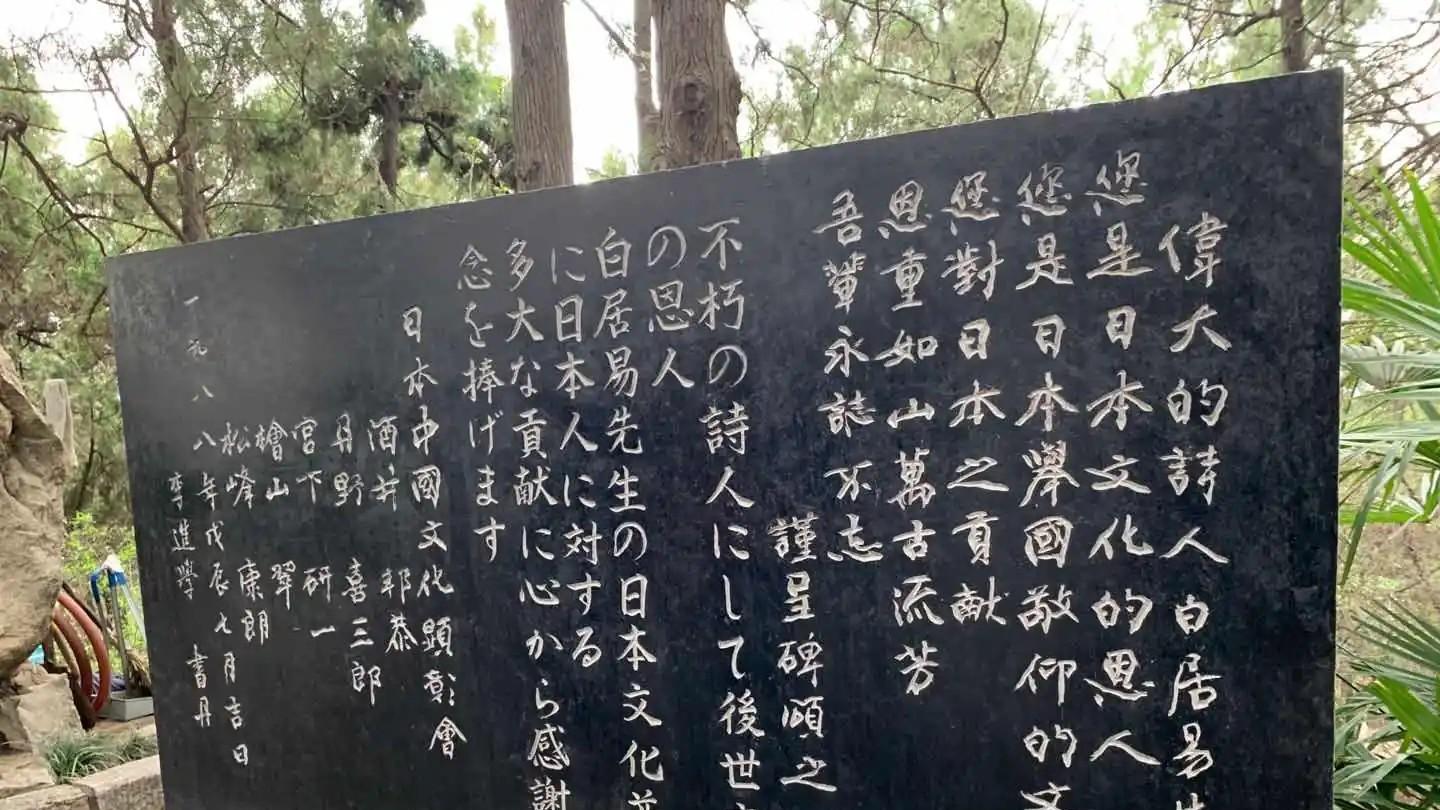 偉大的詩人白居易
您是日本文化的恩人
您是日本舉國敬仰的文
您對日本之貢献
恩重如山萬古流芳
吾輩永誌不忘
謹呈碑頌之
不朽の詩人にして後世
の恩人
白居易先生の日本文化並
に日本人に対する
多大な貢献に心から感謝
念を捧げます
日本中國文化顕彰會
酒井 邦恭
丹野 喜三郎
宮下 研一
檜山 翠
松峰 康朗
一九八八年戊辰七月吉日
李進學 書丹